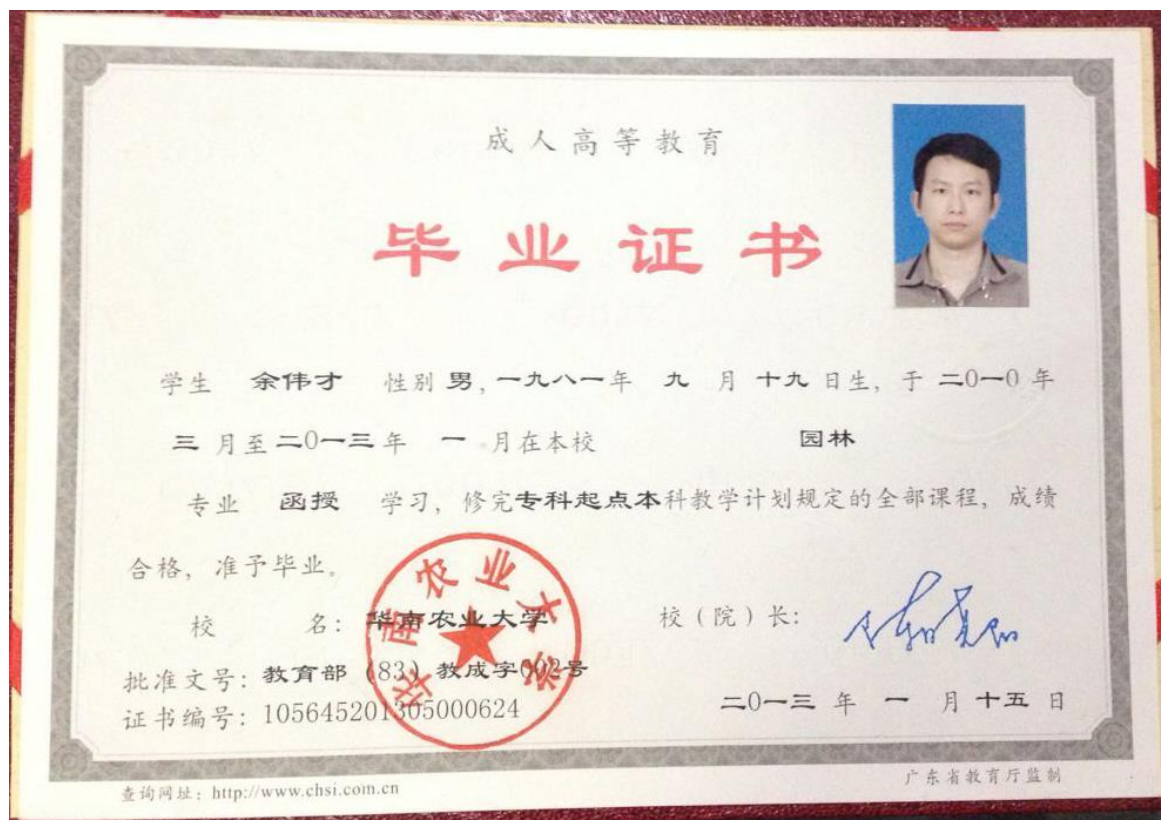 成人高等教育
毕业证书
学生 余伟才 性别 男，一九八一年 九 月 十九 日生，于 二0一0 年
三 月至 二0一三 年 一 月在本校 园林
专业 函授 学习，修完专科起点本科教学计划规定的全部课程，成绩
合格，准予毕业。
校 名：华南农业大学 校（院）长：
华南农业大学
批准文号：教育部（83）教成字002号
证书编号：105645201305000624
二0一三 年 一 月 十五 日
查询网址：http://www.chsi.com.cn
广东省教育厅监制